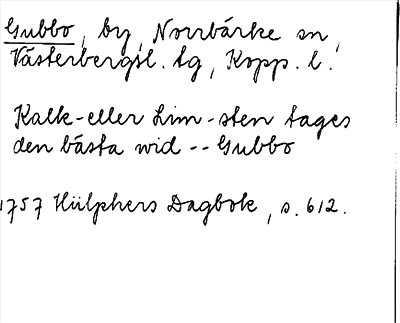 Gubbo, by, Norrbärke sn,
Västerbergsl. tg, Kopp. l.
Kalk-eller Lim-sten tages
den bästa wid -- Gubbo
1757 Hülphers Dagbok, s. 612.